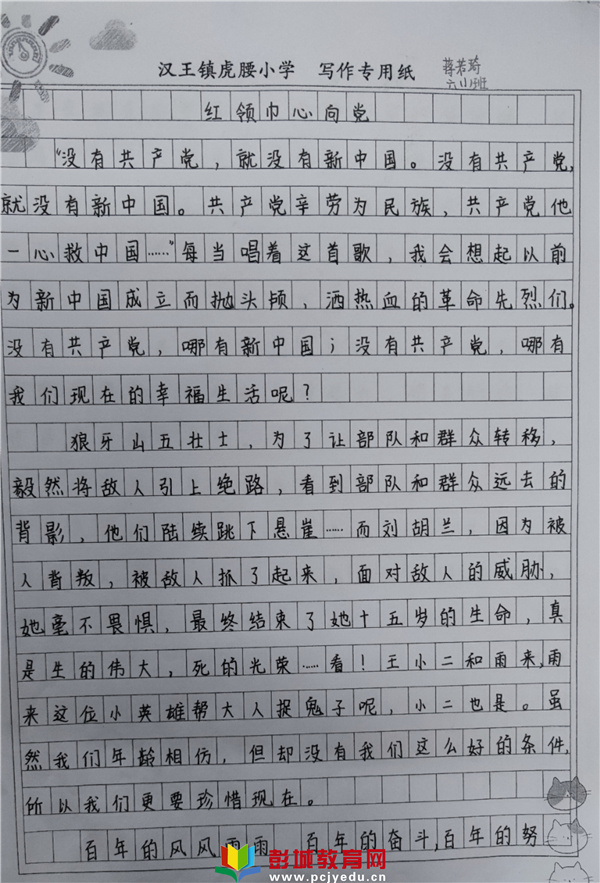 汉王镇虎腰小学 写作专用纸
蒋若琦
六(1)班
红领巾心向党
“没有共产党，就没有新中国。没有共产党，
就没有新中国。共产党辛劳为民族，共产党他
一心救中国……”每当唱着这首歌，我会想起以前
为新中国成立而抛头颅，洒热血的革命先烈们。
没有共产党，哪有新中国；没有共产党，哪有
我们现在的幸福生活呢？
狼牙山五壮士，为了让部队和群众转移，
毅然将敌人引上绝路，看到部队和群众远去的
背影，他们陆续跳下悬崖……而刘胡兰，因为被
人背叛，被敌人抓了起来，面对敌人的威胁，
她毫不畏惧，最终结束了她十五岁的生命，真
是生的伟大，死的光荣……看！王小二和雨来，雨
来这位小英雄帮大人捉鬼子呢，小二也是。虽
然我们年龄相仿，但却没有我们这么好的条件，
所以我们更要珍惜现在。
百年的风风雨雨，百年的奋斗，百年的努
彭城教育网
www.pcjyedu.com